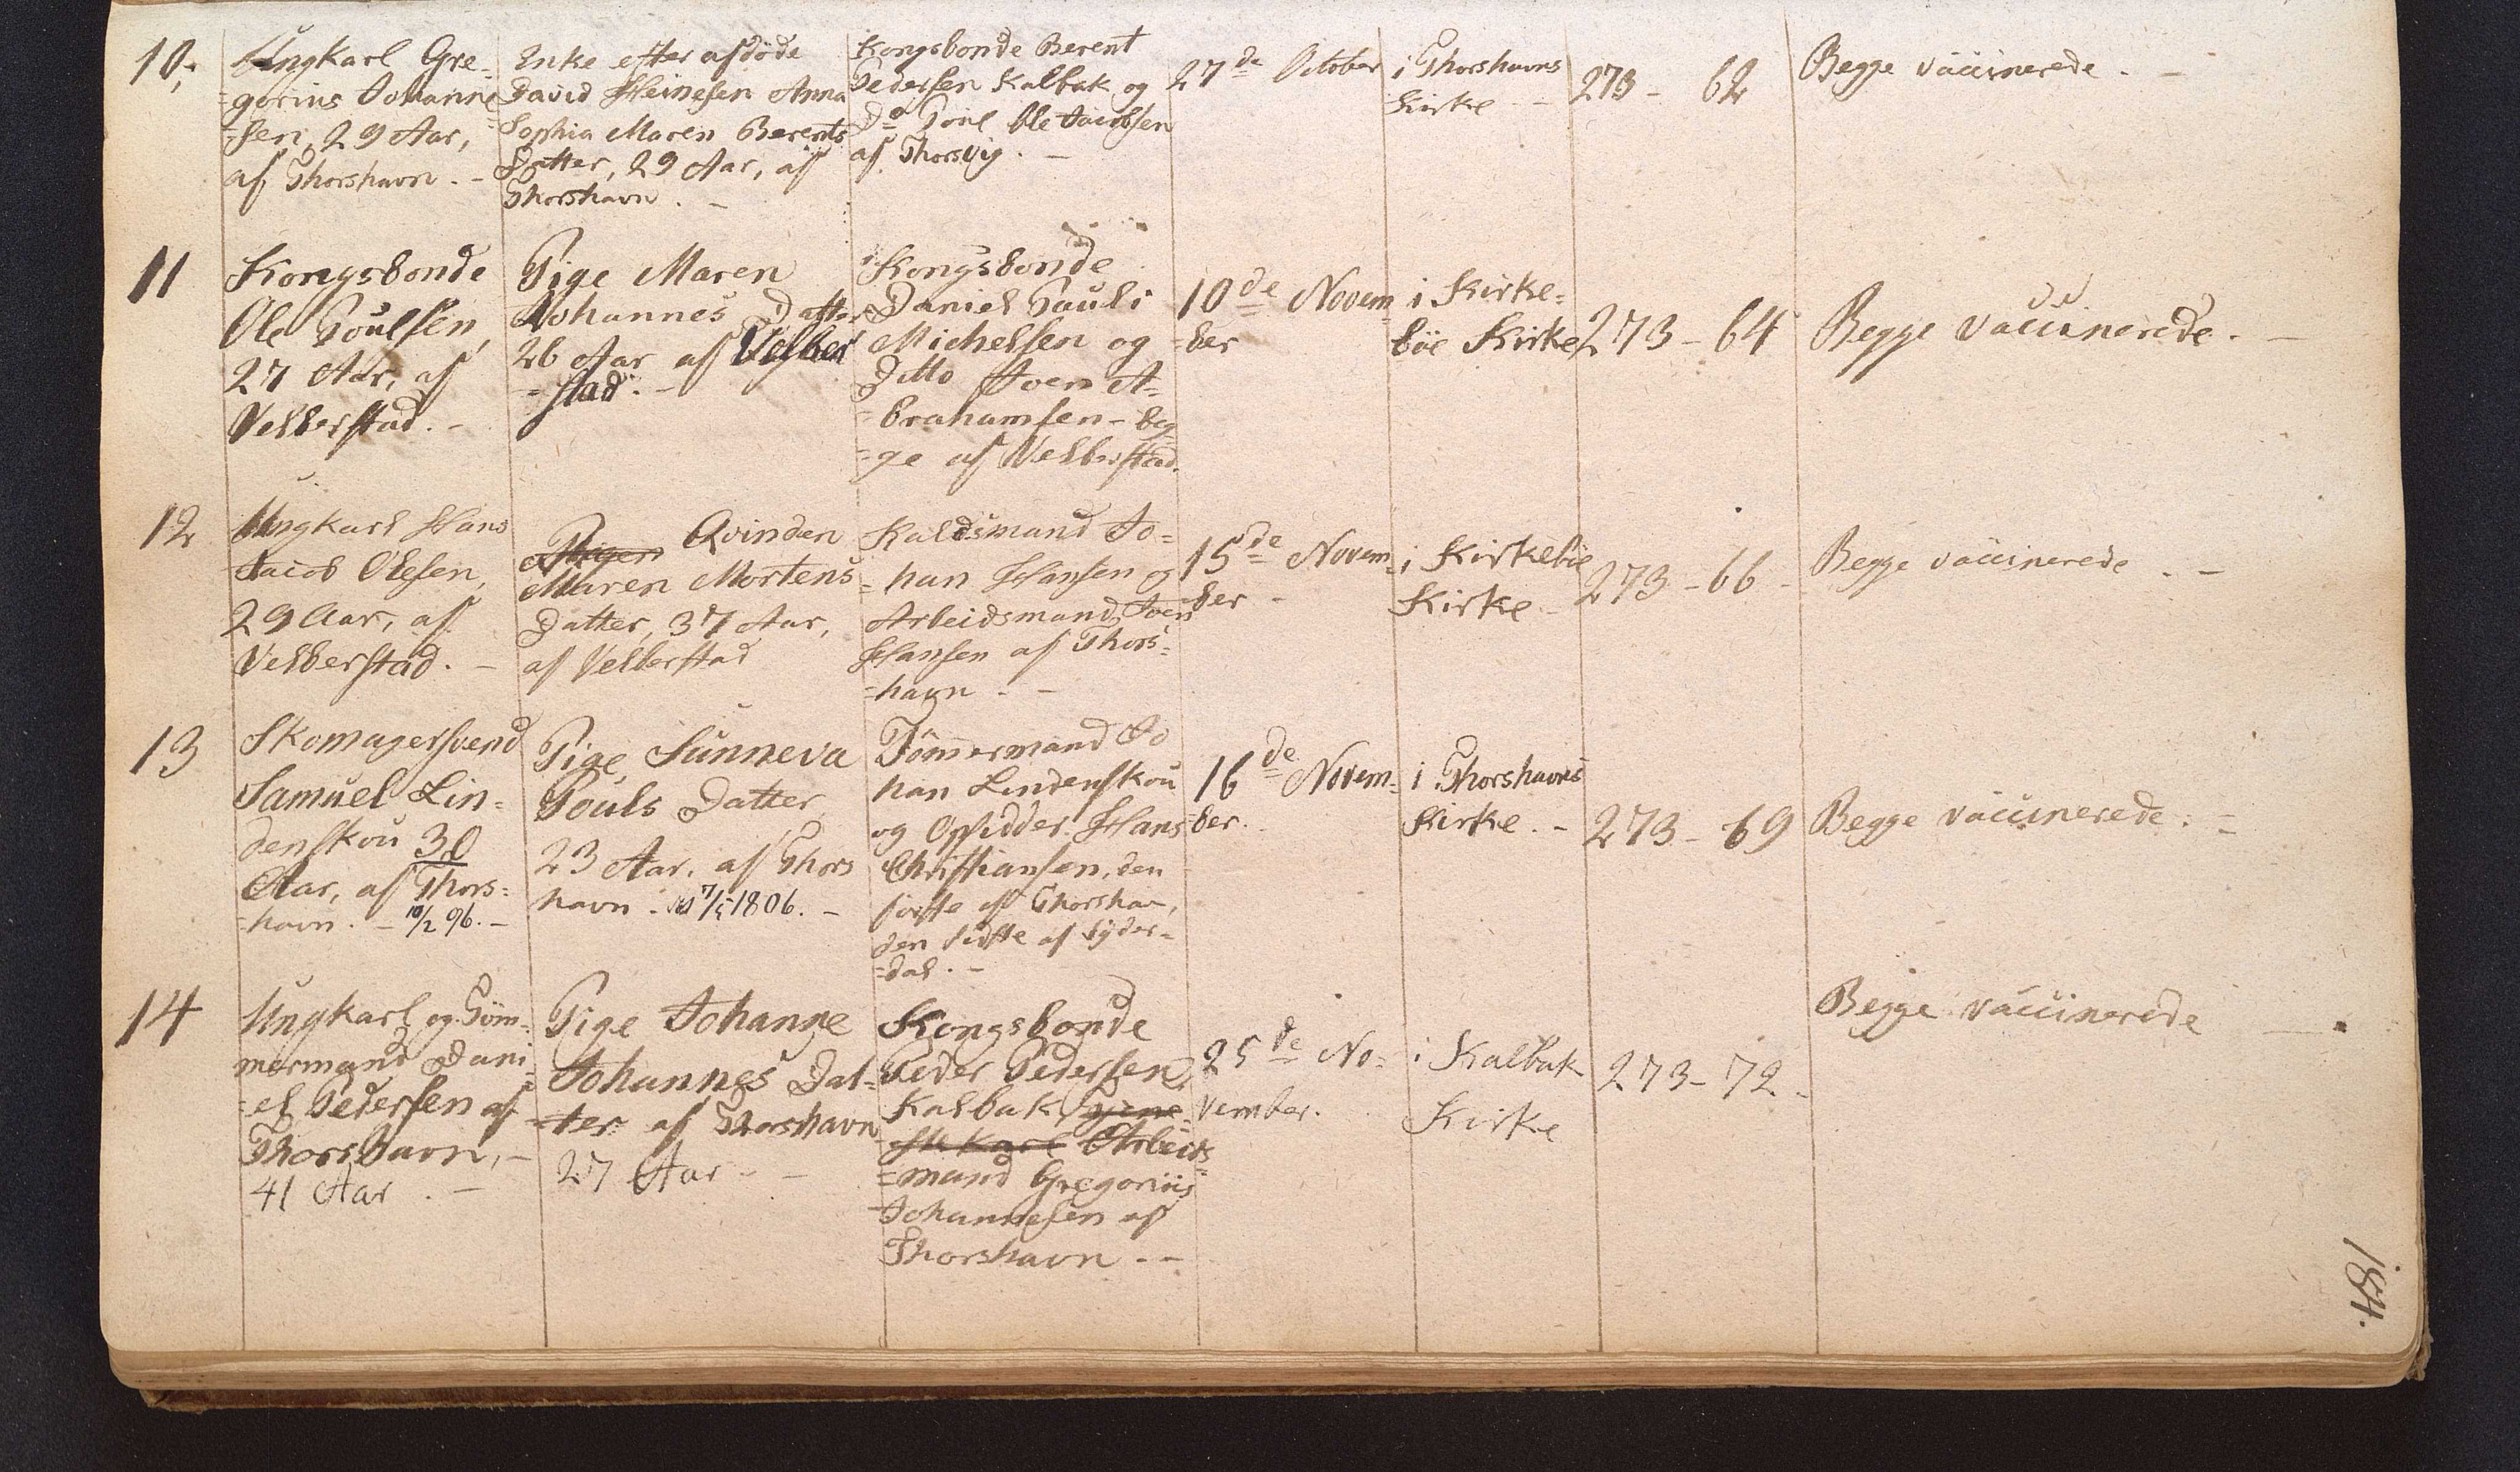 10,
Ungkarl Gre-
=gorius Johanne
=sen, 29 Aar,
af Thorshavn. -
Enke efter afdöde
David Heinesen Anna
Sophia Maren Berents
Datter, 29 Aar, af
Thorshavn. -
Kongsbonde Berent
Pedersen Kalbak og
Do Ole Jacobsen
af Thorsvig. -
27de October
i Thorshavns
Kirke -
273 - 62
Begge vaccinerede. -
11
Kongsbonde
Ole Poulsen,
27 Aar, af
Velberstad. -
Pige Maren
Johannes Datter
26 Aar af Velber
=stad. -
Kongsbonde
Daniel Pauli
Michelsen og
Ditto Joen A=
=brahamsen - beg
=ge af Velberstad.
10de Novem
=ber
i Kirke=
böe Kirke
273 - 64
Begge vaccinerede. -
12
Ungkarl Hans
Jacob Olesen,
29 Aar, af
Velberstad. -
Pigen Qvinden
Maren Mortens
Datter, 37 Aar,
af Velberstad
Kaldsmand Jo=
=han Hansen og
Arbeidsmand Joen
Hansen af Thors=
=havn. -
15de Novem=
ber -
i Kirkeböe
Kirke -
273 - 66 -
Begge vaccinerede. -
13
Skomagersvend
Samuel Lin=
denskou 30
Aar, af Thors=
=havn. - 10/2 96. -
Pige Sunneva
Pouls Datter
23 Aar, af Thors
havn. 7/5 1806. -
Tömmermand Jo
han Lindenskou
og Opsidder Hans
Christiansen, den
förste af Thorshavn,
den sidste af Syder=
=dal. -
16de Novem=
=ber.
i Thorshavns
Kirke. -
273 - 69
Begge vaccinerede. =
14
Ungkarl og Töm=
mermand Dani=
=el Pedersen af
Thorshavn, -
41 Aar. -
Pige Johanne
Johannes Dat=
=ter af Thorshavn
27 Aar - -
Kongsbonde
Peder Pedersen
Kalbak Arbeids=
=mand Gregorius
Johannesen af
Thorshavn - -
25de No=
vember.
i Kalbak
Kirke
273 - 72.
Begge vaccinerede -
184.